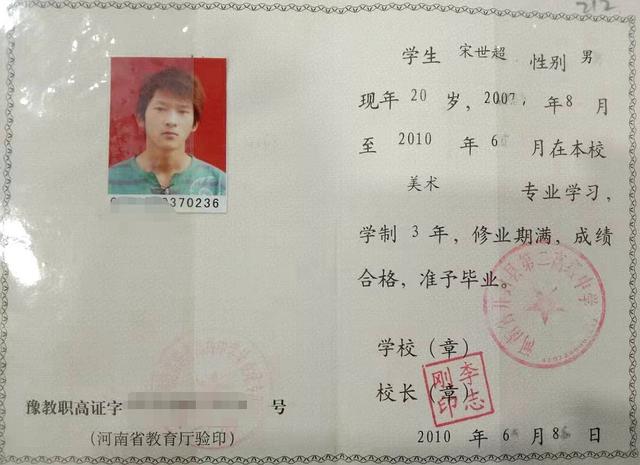 212
学生 宋世超 性别 男
现年 20 岁, 2007 年 8 月
至 2010 年 6 月在本校
美术 专业学习,
学制 3 年, 修业期满, 成绩
合格, 准予毕业。
学校（章）
校长（章）
李志刚印
2010 年 6 月 8 日
370236
豫教职高证字 号
（河南省教育厅验印）